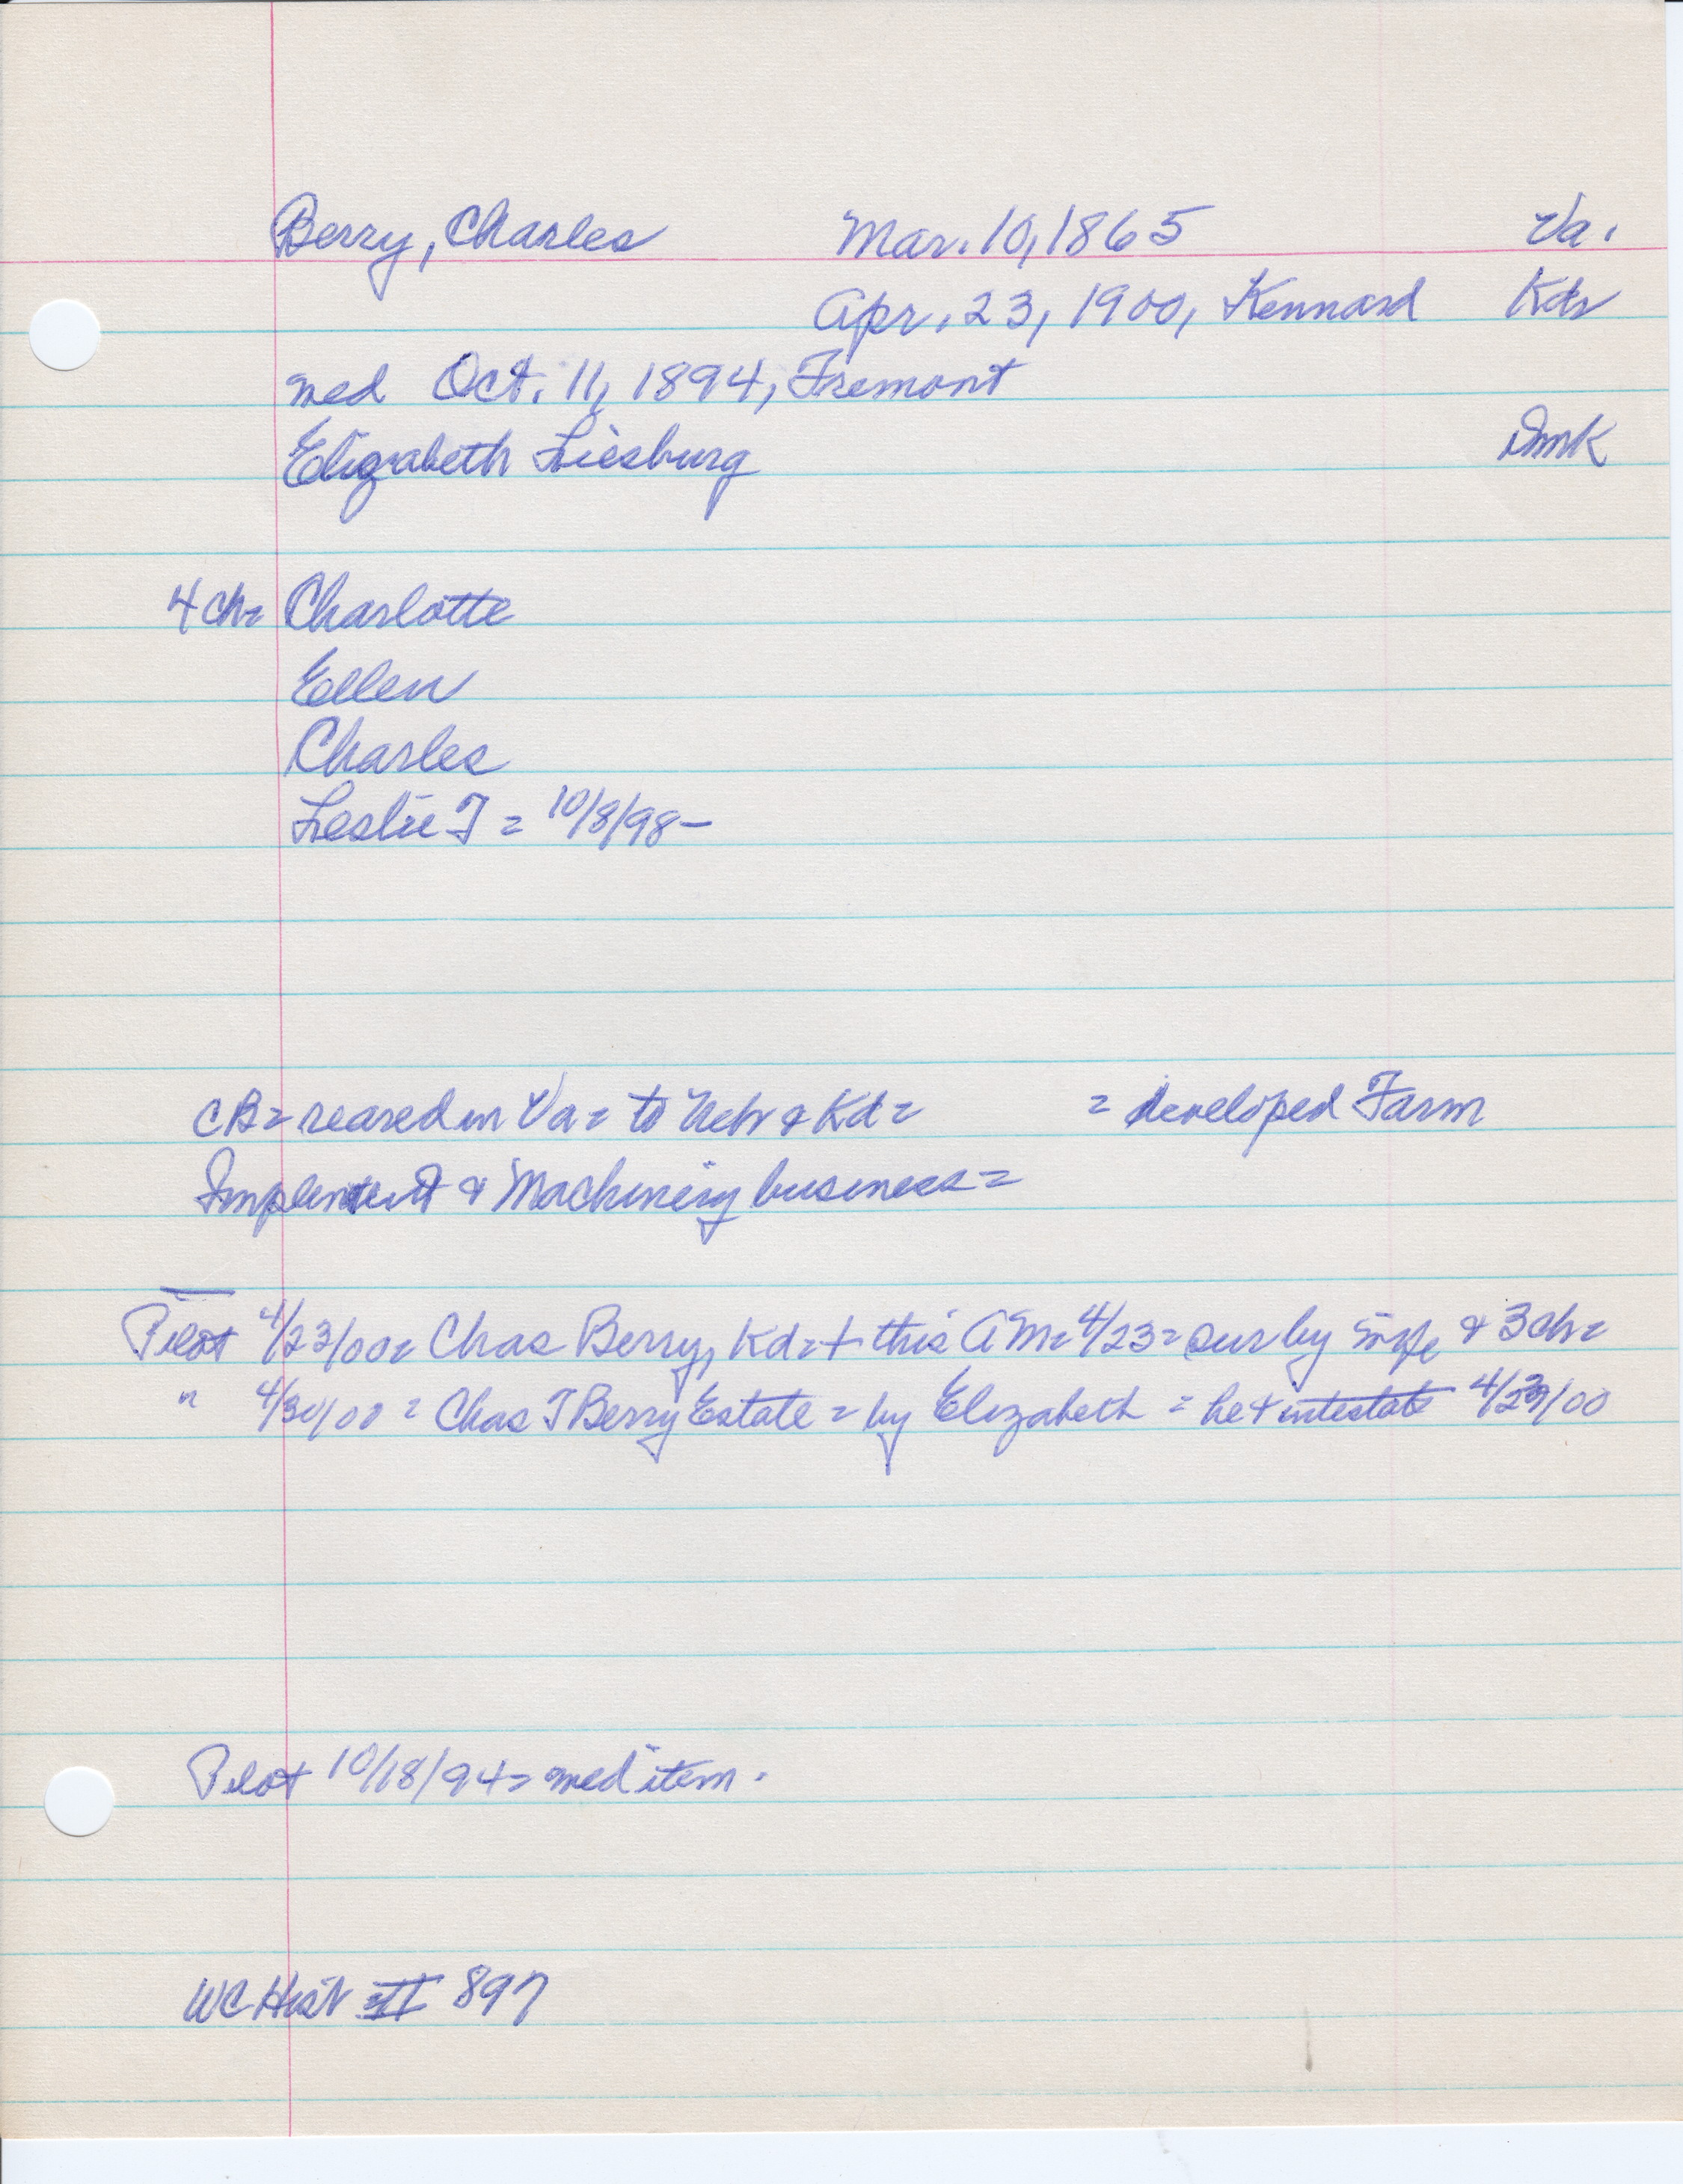 Berry, Charles Mar. 10, 1865 Va.
Apr. 23, 1900, Kennard Kdr
med Oct. 11, 1894, Fremont
Elizabeth Liesburg Dmk
4 ch = Charlotte
Ellen
Charles
Leslie T = 10/8/98 -
CB = reared in Va = to Nebr & Kd = = developed Farm
Implement & Machinery business =
Pilot 4/23/00 = Chas Berry, Kd = + this AM = 4/23 = sur by wife & 3 ch =
" 4/30/00 = Chas T Berry Estate = by Elizabeth = he + intestate 4/23/00
Pilot 10/18/94 = med item.
WC Hist II 897